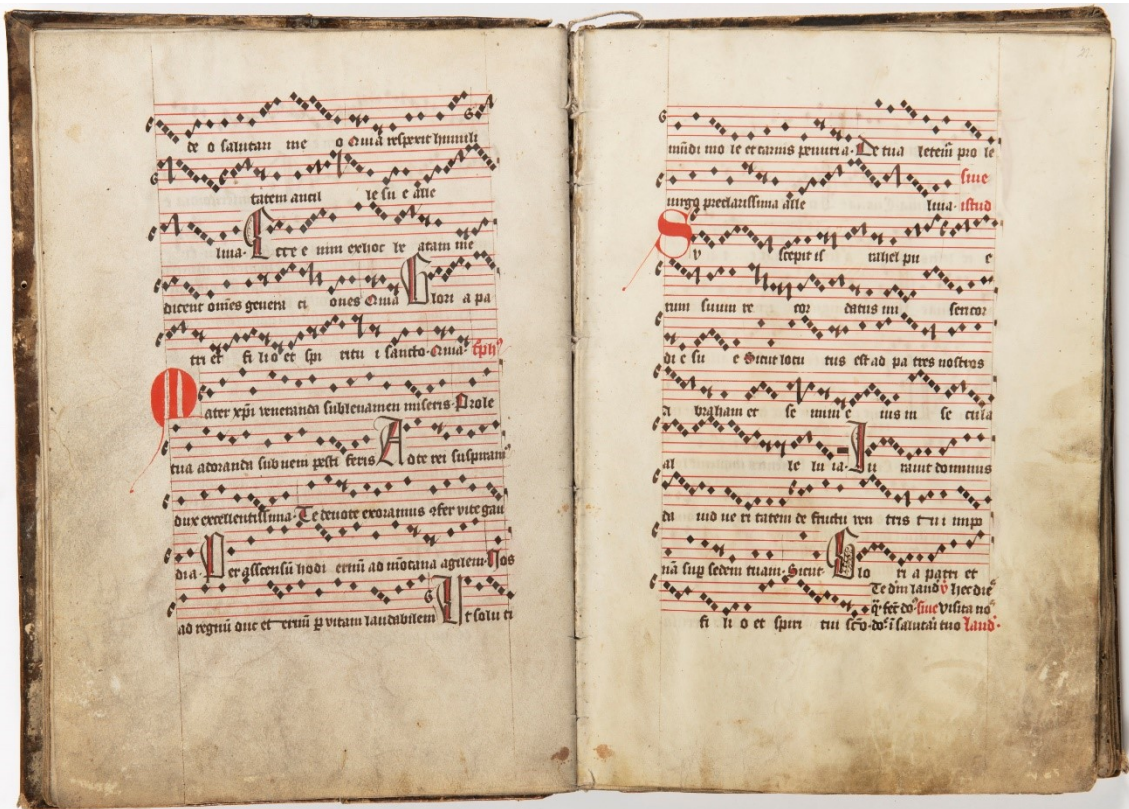 de o salutari me o Quia respexit humili
tatem ancil le su e alle
luia. Ecce e nim ex hoc be atam me
dicent omēs genera ci ones Quia Glori a pa
tri et fi lio et spi ritu i sancto. Quia.
Mater xp̄i veneranda sublevamen miseris. Prole
tua adoranda subveni pesti feris Adote rei suspiram
dux excellentissima. Te devote exoramus vite gau
dia. Per asscensū hodi ernū ad mōtana agilem. Nos
ad regnū duc et trinū p vitam laudabilem Ut soluti
mūdi mo le et carnis penuria. De tua letem pro le
sive
virgo preclarissima alle luia. istud
Su scepit is rahel pu e
rum suum re cor datus mi sericor
di e su e Sicut locu tus est ad pa tres nostros
a braham et se mini e ius in se cula
al le lu ia. Iu ravit dominus
da vid ve ri tatem de fructu ven tris t u i impo
nā sup sedem tuam. Sicut. Glo ri a patri et
Te dm laud v hec die
q̄ fec do sive visita no
fi li o et spiri tui scō. do i salutari tuo laud.